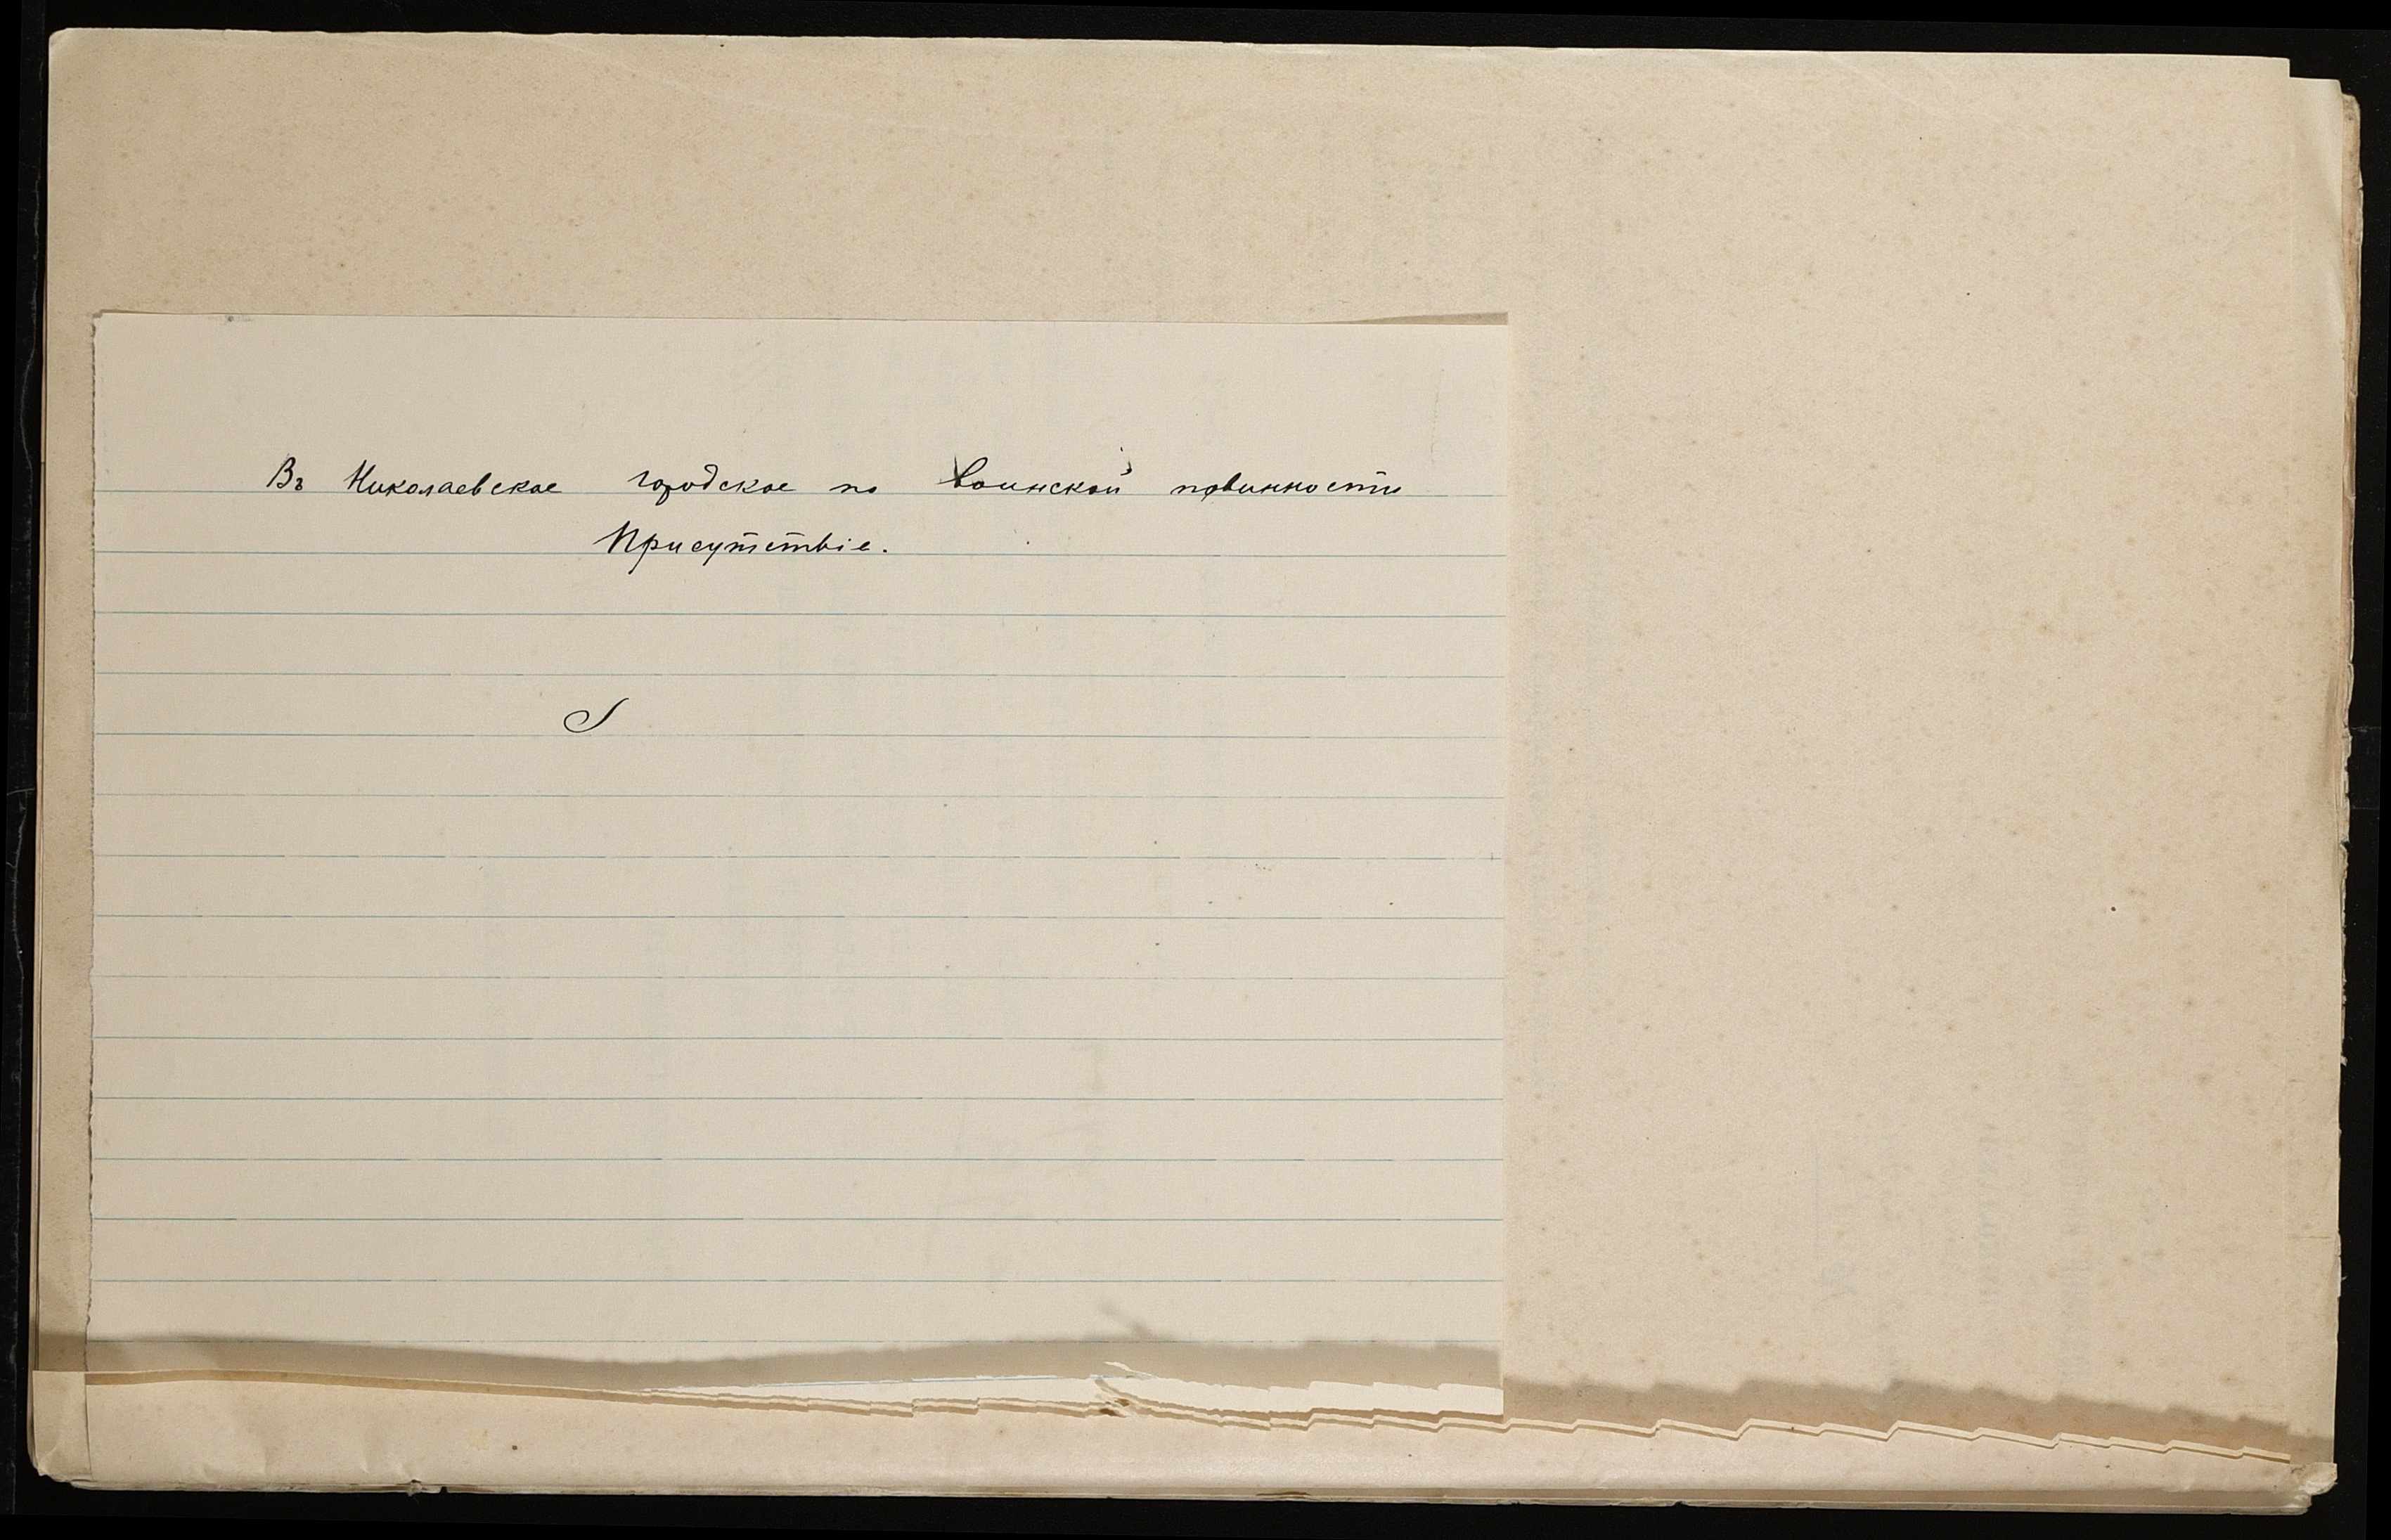 Въ Николаевское городское по воинской повинности
Присутствіе.